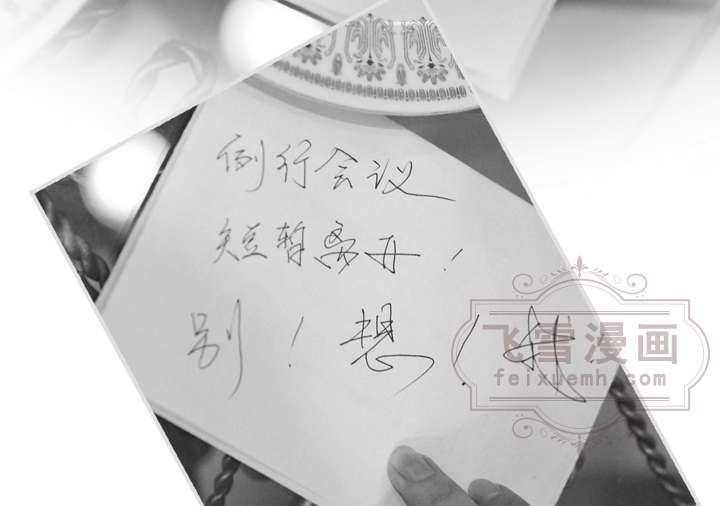 例行会议
短暂离开！
别！想！我
飞雪漫画
feixuemh.com